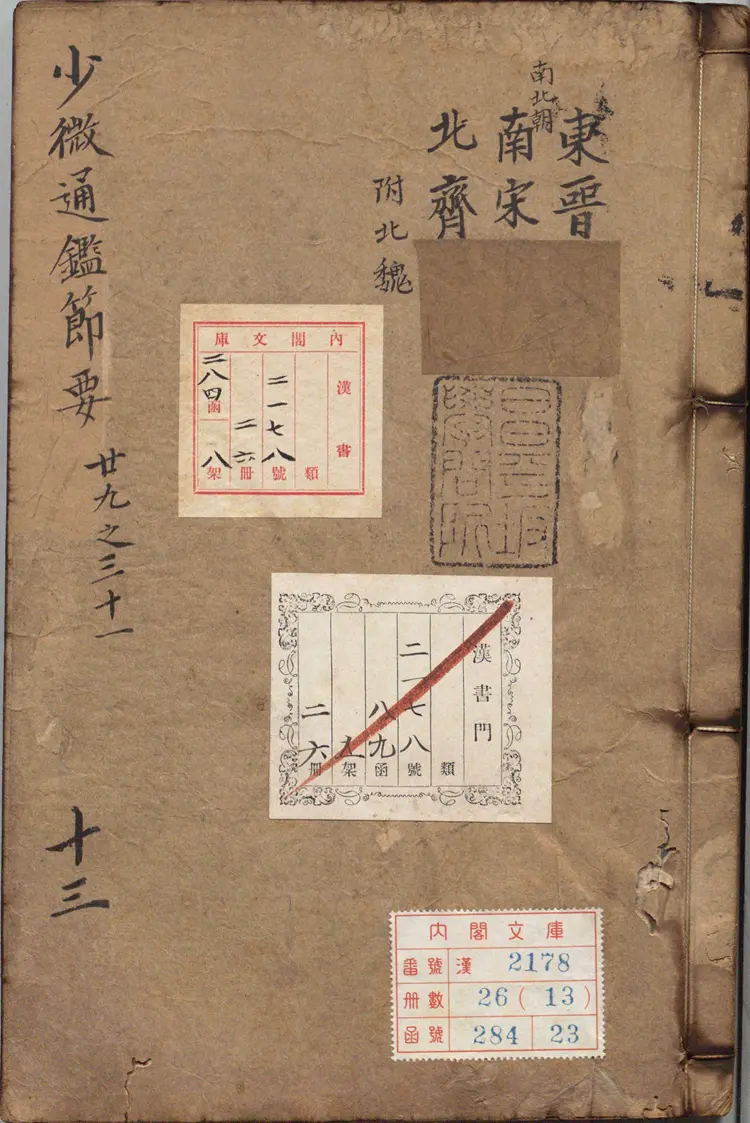 東晉
南北朝
南宋
北齊
附北魏
昌平坂
學問所
內閣文庫
漢書
類
二一七八號
二六冊
二八四函
八架
漢書門
類
二一七八號
八九函
架
二六冊
內閣文庫
番號 漢 2178
冊數 26(13)
函號 284 23
少微通鑑節要 廿九之三十一 十三